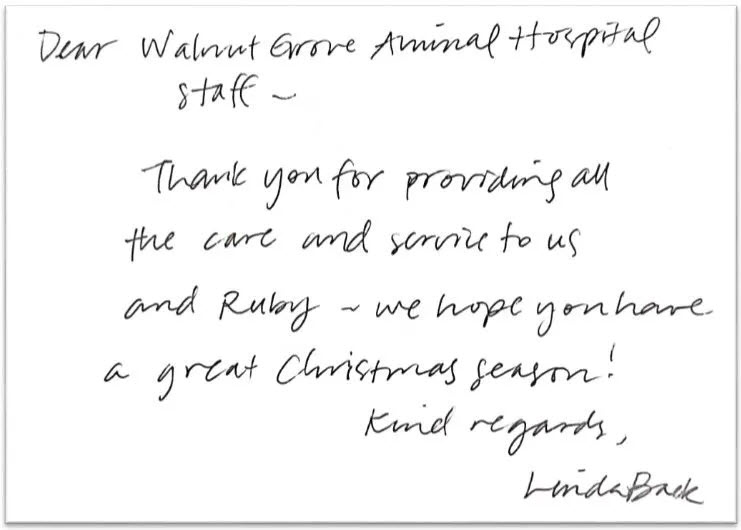 Dear Walnut Grove Animal Hospital
staff ~
Thank you for providing all
the care and service to us
and Ruby ~ we hope you have
a great Christmas season!
Kind regards,
Linda Baek